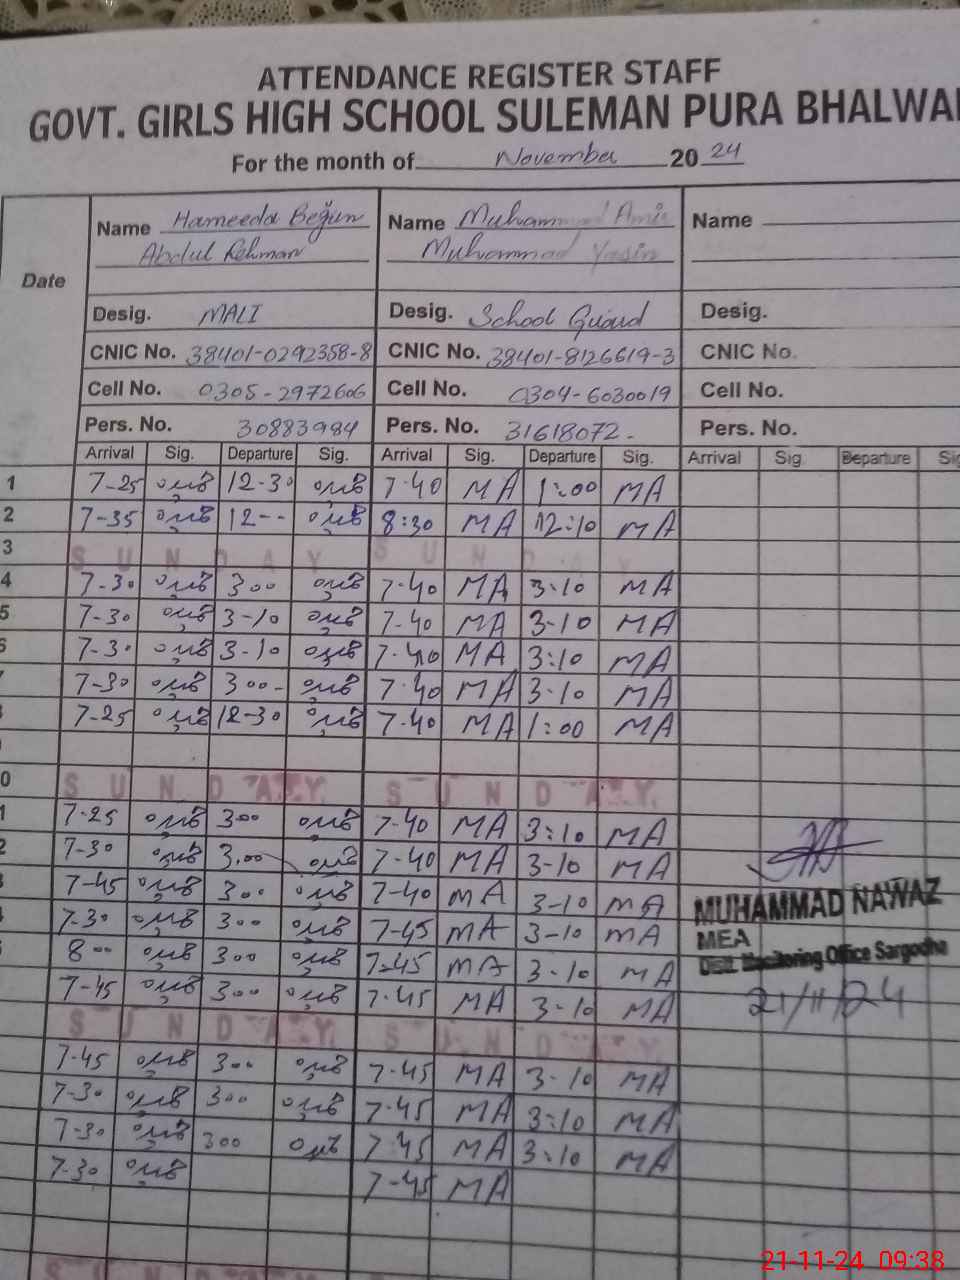 ATTENDANCE REGISTER STAFF
GOVT. GIRLS HIGH SCHOOL SULEMAN PURA BHALWA
For the month of November 20 24
Date
Name Hameeda Begum Name Muhammad Amir Name
Abdul Rehman Muhammad Yasin
Desig. MALI Desig. School Guard Desig.
CNIC No. 38401-0292358-8 CNIC No. 38401-8126619-3 CNIC No.
Cell No. 0305-2972606 Cell No. 0304-6030019 Cell No.
Pers. No. 30883984 Pers. No. 31618072- Pers. No.
Arrival Sig. Departure Sig. Arrival Sig. Departure Sig. Arrival Sig. Departure Sig
1 7-25 12-30 7-40 MA 1:00 MA
2 7-35 12-- 8:30 MA 12:10 MA
3 SUNDAY SUNDAY
4 7-30 300 7-40 MA 3-10 MA
5 7-30 3-10 7-40 MA 3-10 MA
7-30 3-10 7-40 MA 3:10 MA
7-30 300- 7-40 MA 3-10 MA
7-25 12-30 7-40 MA 1:00 MA
0 SUNDAY SUNDAY
1 7-25 300 7-40 MA 3:10 MA
2 7-30 3.00 7-40 MA 3-10 MA
7-45 300 7-40 MA 3-10 MA
7-30 300 7-45 MA 3-10 MA
8 00 300 7-45 MA 3-10 MA
7-45 300 7-45 MA 3-10 MA
SUNDAY SUNDAY
7-45 300 7-45 MA 3-10 MA
7-30 300 7-45 MA 3:10 MA
7-30 300 7-45 MA 3:10 MA
7-30 7-45 MA
SUNDAY
MUHAMMAD NAWAZ
MEA
Distt. Monitoring Office Sargodha
21/11/24
21-11-24 09:38